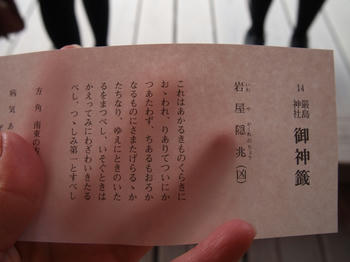 14 厳島神社 御神籤
いわ や かくれ の ちょう
岩屋隠兆(凶)
これはあかるきものくらきに
おゝわれ、りありてついにか
つあたわず、ちあるもおろか
なるものにさまたげらるゝか
たちなり、ゆえにときのいた
るをまつべし、いそぐときは
かえってみにわざわいきたる
べし、つゝしみ第一とすべし
方角 南東の方
病気 あ